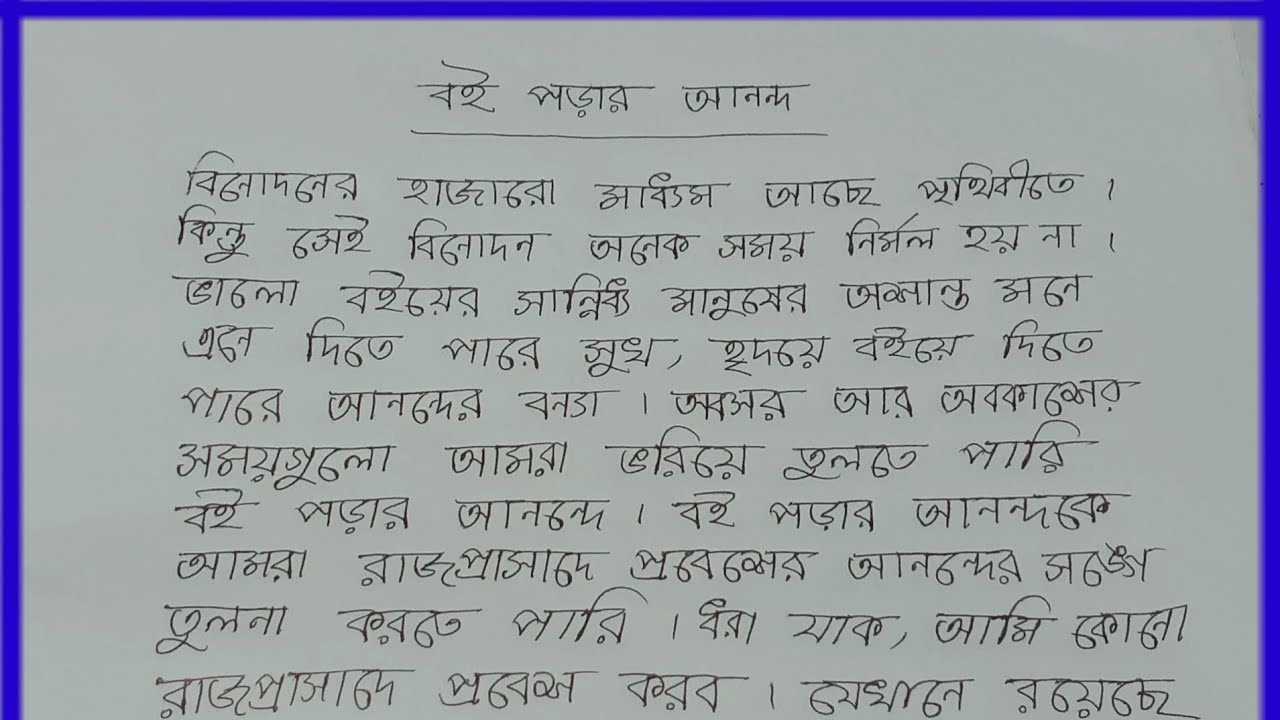 বই পড়ার আনন্দ
বিনোদনের হাজারো মাধ্যম আছে পৃথিবীতে ।
কিন্তু সেই বিনোদন অনেক সময় নির্মল হয় না ।
ভালো বইয়ের সান্নিধ্য মানুষের অশান্ত মনে
এনে দিতে পারে সুখ, হৃদয়ে বইয়ে দিতে
পারে আনন্দের বন্যা । অবসর আর অবকাশের
সময়গুলো আমরা ভরিয়ে তুলতে পারি
বই পড়ার আনন্দে । বই পড়ার আনন্দকে
আমরা রাজপ্রাসাদে প্রবেশের আনন্দের সঙ্গে
তুলনা করতে পারি । ধরা যাক, আমি কোনো
রাজপ্রাসাদে প্রবেশ করব । যেখানে রয়েছে